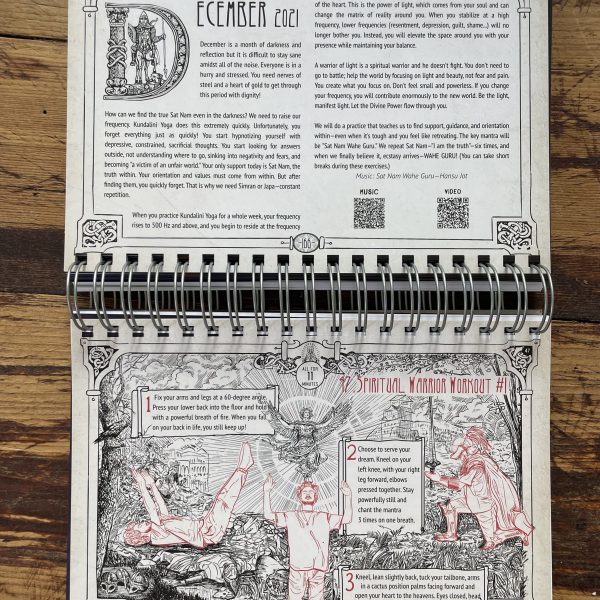 DECEMBER 2021
December is a month of darkness and
reflection but it is difficult to stay sane
amidst all of the noise. Everyone is in a
hurry and stressed. You need nerves of
steel and a heart of gold to get through
this period with dignity!
How can we find the true Sat Nam even in the darkness? We need to raise our
frequency. Kundalini Yoga does this extremely quickly. Unfortunately, you
forget everything just as quickly! You start hypnotizing yourself with
depressive, constrained, sacrificial thoughts. You start looking for answers
outside, not understanding where to go, sinking into negativity and fears, and
becoming "a victim of an unfair world." Your only support today is Sat Nam, the
truth within. Your orientation and values must come from within. But after
finding them, you quickly forget. That is why we need Simran or Japa—constant
repetition.
When you practice Kundalini Yoga for a whole week, your frequency
rises to 500 Hz and above, and you begin to reside at the frequency
of the heart. This is the power of light, which comes from your soul and can
change the matrix of reality around you. When you stabilize at a high
frequency, lower frequencies (resentment, depression, guilt, shame...) will no
longer bother you. Instead, you will elevate the space around you with your
presence while maintaining your balance.
A warrior of light is a spiritual warrior and he doesn't fight. You don't need to
go to battle; help the world by focusing on light and beauty, not fear and pain.
You create what you focus on. Don't feel small and powerless. If you change
your frequency, you will contribute enormously to the new world. Be the light,
manifest light. Let the Divine Power flow through you.
We will do a practice that teaches us to find support, guidance, and orientation
within—even when it's tough and you feel like retreating. The key mantra will
be "Sat Nam Wahe Guru." We repeat Sat Nam—"I am the truth"—six times, and
when we finally believe it, ecstasy arrives—WAHE GURU! (You can take short
breaks during these exercises.)
Music: Sat Nam Wahe Guru—Hansu Jot
MUSIC
VIDEO
166
ALL FOR
11
MINUTES
47 SPIRITUAL WARRIOR WORKOUT #1
1 Fix your arms and legs at a 60-degree angle.
Press your lower back into the floor and hold
with a powerful breath of fire. When you fall
on your back in life, you still keep up!
2 Choose to serve your
dream. Kneel on your
left knee, with your right
leg forward, elbows
pressed together. Stay
powerfully still and
chant the mantra
3 times on one breath.
3 Kneel, lean slightly back, tuck your tailbone, arms
in a cactus position palms facing forward and
open your heart to the heavens. Eyes closed, head